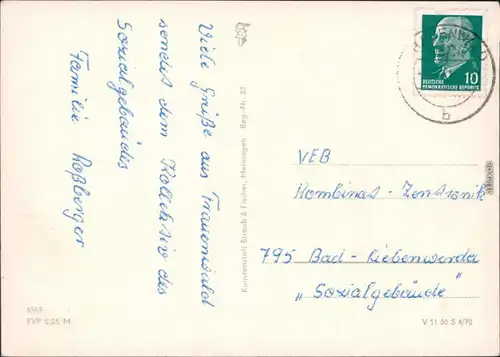 Viele Grüße aus Frauenwald
sendet dem Kollektiv des
Sozialgebäudes
Familie Roßberger
Kunstanstalt Straub & Fischer, Meiningen Reg.-Nr. 23
DEUTSCHE
DEMOKRATISCHE REPUBLIK
10
b
VEB
Kombinat-Zentronik
795 Bad-Liebenwerda
„Sozialgebäude“
EVP 0,25 M
V 11 50 S 4/70